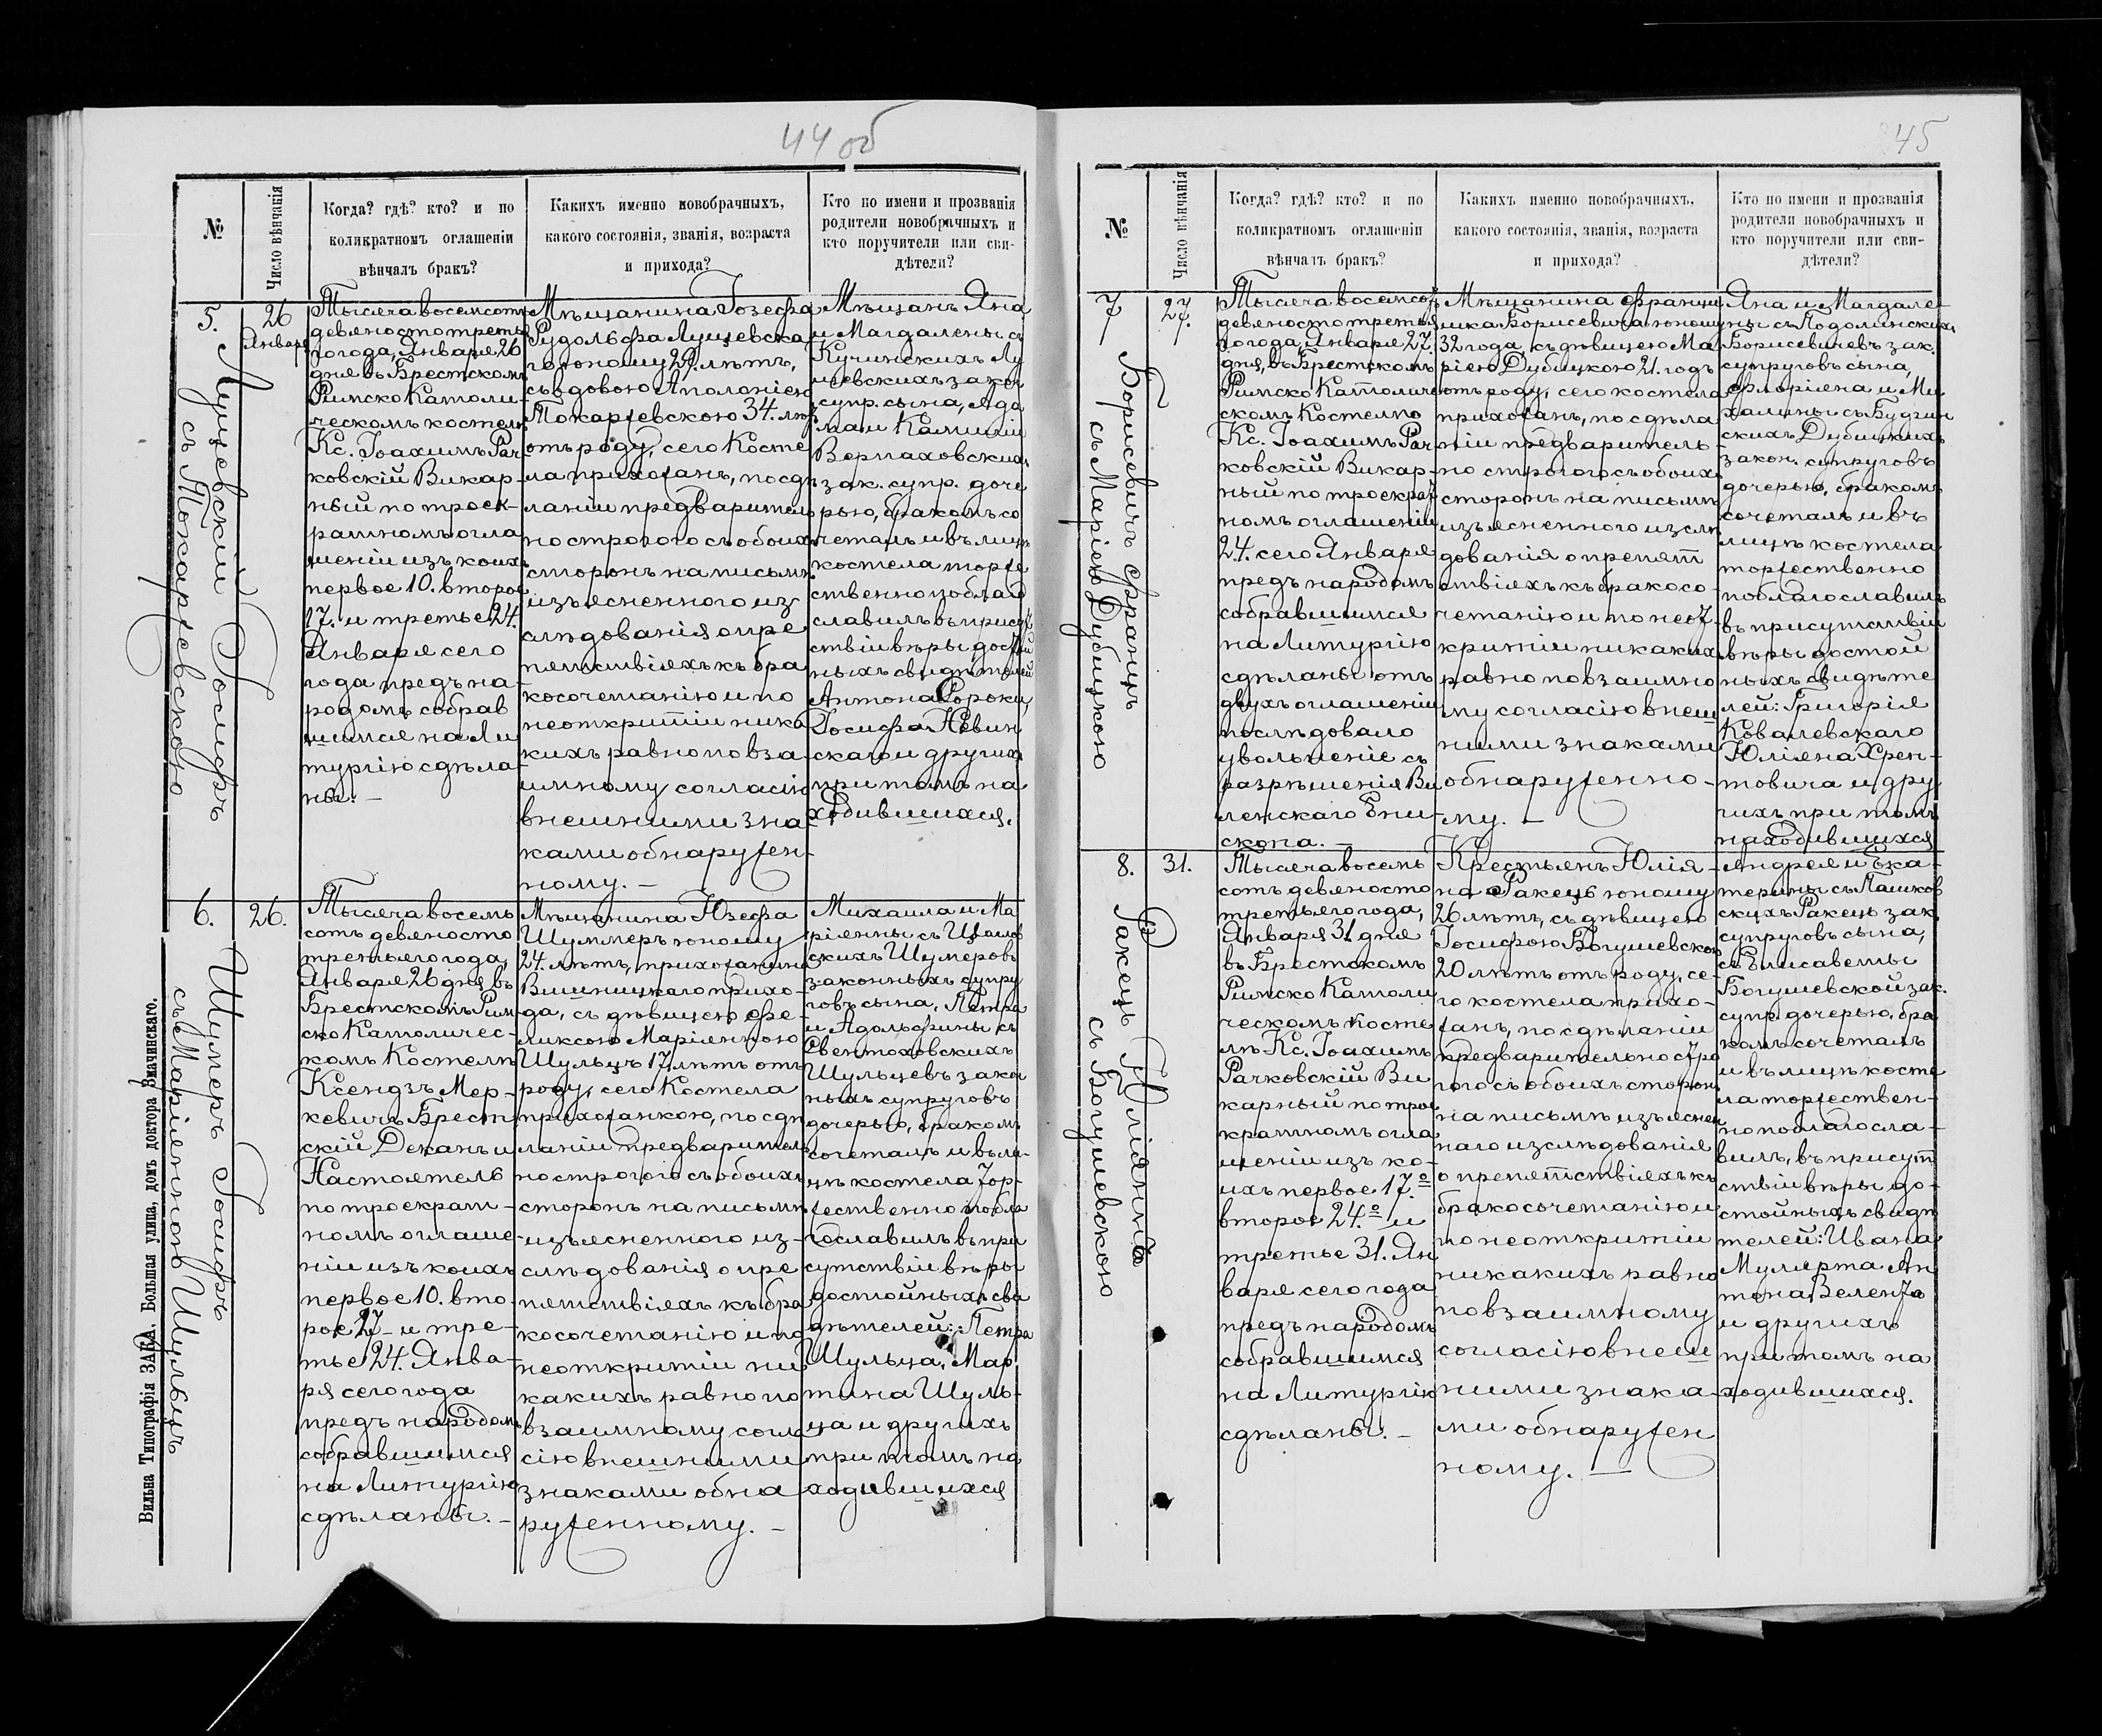 44 об
№
Число вѣнчанія
Когда? гдѣ? кто? и по
коликратномъ оглашеніи
вѣнчалъ бракъ?
Какихъ именно новобрачныхъ,
какого состоянія, званія, возраста
и прихода?
Кто по имени и прозванія
родители новобрачныхъ и
кто поручители или сви-
дѣтели?
5.
Луцевскій Іосифъ
съ Токаржевскою
26
Января
Тысяча восемсотъ
девяносто треть
яго года, Января 26
дня въ Брестскомъ
Римско Католи-
ческомъ костелѣ
Кс. Іоахимъ Рач
ковскій Викар-
ный по троек-
ратномъ огла
шеніи изъ коихъ
первое 10. второе
17. и третье 24.
Января сего
года предъ на-
родомъ собрав
шимся на Ли
тургію сдѣла-
ны. —
Мѣщанина Іозефа
Рудольфа Луцевска
го юному 29. лѣтъ,
съ вдовою Аполоніею
Токаржевскою 34. лѣтъ
отъ роду, сего Косте
ла прихожанъ, по сдѣ
ланіи предваритель
но строгого съ обоихъ
сторонъ на письмѣ
изъясненного из
слѣдованія о пре
пятствіяхъ къ бра
косочетанію и по
неоткритіи ника
кихъ равно по вза-
имному согласію
внешними зна
ками обнаружен-
ному. —
Мѣщанъ Яна
и Магдалены съ
Кучинскихъ Лу
цевскихъ закон
супр. сына, Ада
ма и Камиліи
Вормаховскихъ
зак. супр. доче
рью, бракомъ со
четалъ и въ лицѣ
костела торже
ственно поблаго
славилъ въ присут
ствіи вѣры достой
ныхъ свидѣтелей
Антона Сороки,
Іосифа Левин
скаго и другихъ
при томъ на
ходившихся.
6.
Шумеръ Іосифъ
съ Маріянною Шульцъ
26.
Тысяча восемь
сотъ девяносто
третьяго года,
Января 26 дня въ
Брестскомъ Рим
ско Католичес-
комъ Костелѣ
Ксендзъ Мер-
кевичъ Брест
скій Деканъ и
Настоятель
по троекрат-
номъ оглаше-
ніи изъ коихъ
первое 10. вто
рое 17 и тре-
тье 24. Янва-
ря сего года
предъ народомъ
собравшимся
на Литургію
сдѣланы. —
Мѣщанина Юзефа
Шуммеръ юному
24. лѣтъ, прихожанина
Вишницкаго прихо-
да, съ дѣвицею Фе-
ликсою Маріянною
Шульцъ 17 лѣтъ отъ
роду, сего Костела
прихожанкою, по сдѣ
ланіи предваритель
но строгого съ обоихъ
сторонъ на письмѣ
изъясненного из-
слѣдованія о пре
пятствіяхъ къ бра
косочетанію и по
неоткритіи ни
какихъ равно по
взаимному согла
сію внешними
знаками обна
руженному. —
Михаила и Ма
ріянны съ
скихъ Шумеровъ
законныхъ супру
говъ сына, Петра
и Адольфины съ
Свентоховскихъ
Шульцевъ закон
ныхъ супруговъ
дочерью, бракомъ
сочеталъ и въ ли-
цѣ костела тор-
жественно побла
гославилъ въ при
сутствіи вѣры
достойныхъ сви
дѣтелей: Петра
Шульца, Мар
тина Шуль-
ца и другихъ
при томъ на
ходившихся
Вильна Типографія ЗАКА. Большая улица, домъ доктора Значинскаго.
45
№
Число вѣнчанія
Когда? гдѣ? кто? и по
коликратномъ оглашеніи
вѣнчалъ бракъ?
Какихъ именно новобрачныхъ,
какого состоянія, званія, возраста
и прихода?
Кто по имени и прозванія
родители новобрачныхъ и
кто поручители или сви-
дѣтели?
7
Борисевичъ Францъ
съ Маріею Дубицкою
27.
Тысяча восемсотъ
девяносто третья
го года, Января 27.
дня, въ Брестскомъ
Римско Католиче
скомъ Костелѣ
Кс. Іоахимъ Рач
ковскій Викар-
ный по троекрат
номъ оглашеніи
24. сего Января
предъ народомъ
собравшимся
на Литургію
сдѣланы отъ
двухъ оглашеніи
послѣдовало
увольненіе съ
разрѣшенія Ви
ленскаго Епи
скопа. —
Мѣщанина Франци
шка Борисевича юному
32 года, съ дѣвицею Ма
ріею Дубицкою 21. годъ
отъ роду, сего костела
прихожанъ, по сдѣла
ніи предваритель
но строгого съ обоихъ
сторонъ на письмѣ
изъясненного изслѣ
дованія о препят
ствіяхъ къ бракосо
четанію и по неот
критіи никакихъ
равно по взаимно
му согласію внеш
ними знаками
обнаруженно-
му. —
Яна и Магдале
ны съ Подолинскихъ
Борисевичевъ зак.
супруговъ сына,
Флоріяна и Ми
халины съ Будзин
скихъ Дубицкихъ
закон. супруговъ
дочерью, бракомъ
сочеталъ и въ
лицѣ костела
торжественно
поблагославилъ
въ присутствіи
вѣры достой
ныхъ свидѣте
лей: Григорія
Ковалевскаго
Юліяна Хреп-
товича и дру
гихъ при томъ
находившихся
8.
Ракецъ Юліянъ
съ Богушевскою
31.
Тысяча восемь
сотъ девяносто
третьяго года,
Января 31 дня
въ Брестскомъ
Римско Католи
ческомъ Косте
лѣ Кс. Іоахимъ
Рачковскій Ви
карный по трое
кратномъ огла
шеніи изъ ко-
ихъ первое 17.º
второе 24.º и
третье 31. Ян
варя сего года
предъ народомъ
собравшимся
на Литургію
сдѣланы. —
Крестьянъ Юлія-
на Ракецъ юному
26 лѣтъ, съ дѣвицею
Іосифою Богушевскою
20 лѣтъ отъ роду, се-
го костела прихо-
жанъ, по сдѣланіи
предварительно стро
гого съ обоихъ сторонъ
на письмѣ изъяснен
наго изслѣдованія
о препятствіяхъ къ
бракосочетанію и
по неоткритіи
никакихъ равно
по взаимному
согласію внеш
ними знака-
ми обнаружен
ному. —
Андрея и Ека-
терины съ Пашков
скихъ Ракецъ зак.
супруговъ сына,
съ Елисаветы
Богушевской зак.
супр. дочерью, бра
комъ сочеталъ
и въ лицѣ косте
ла торжествен-
но поблагосла-
вилъ, въ присут
ствіи вѣры до-
стойныхъ свидѣ
телей: Ивана
Мулярта Ан
тона Веленто
и другихъ
при томъ на
ходившихся.